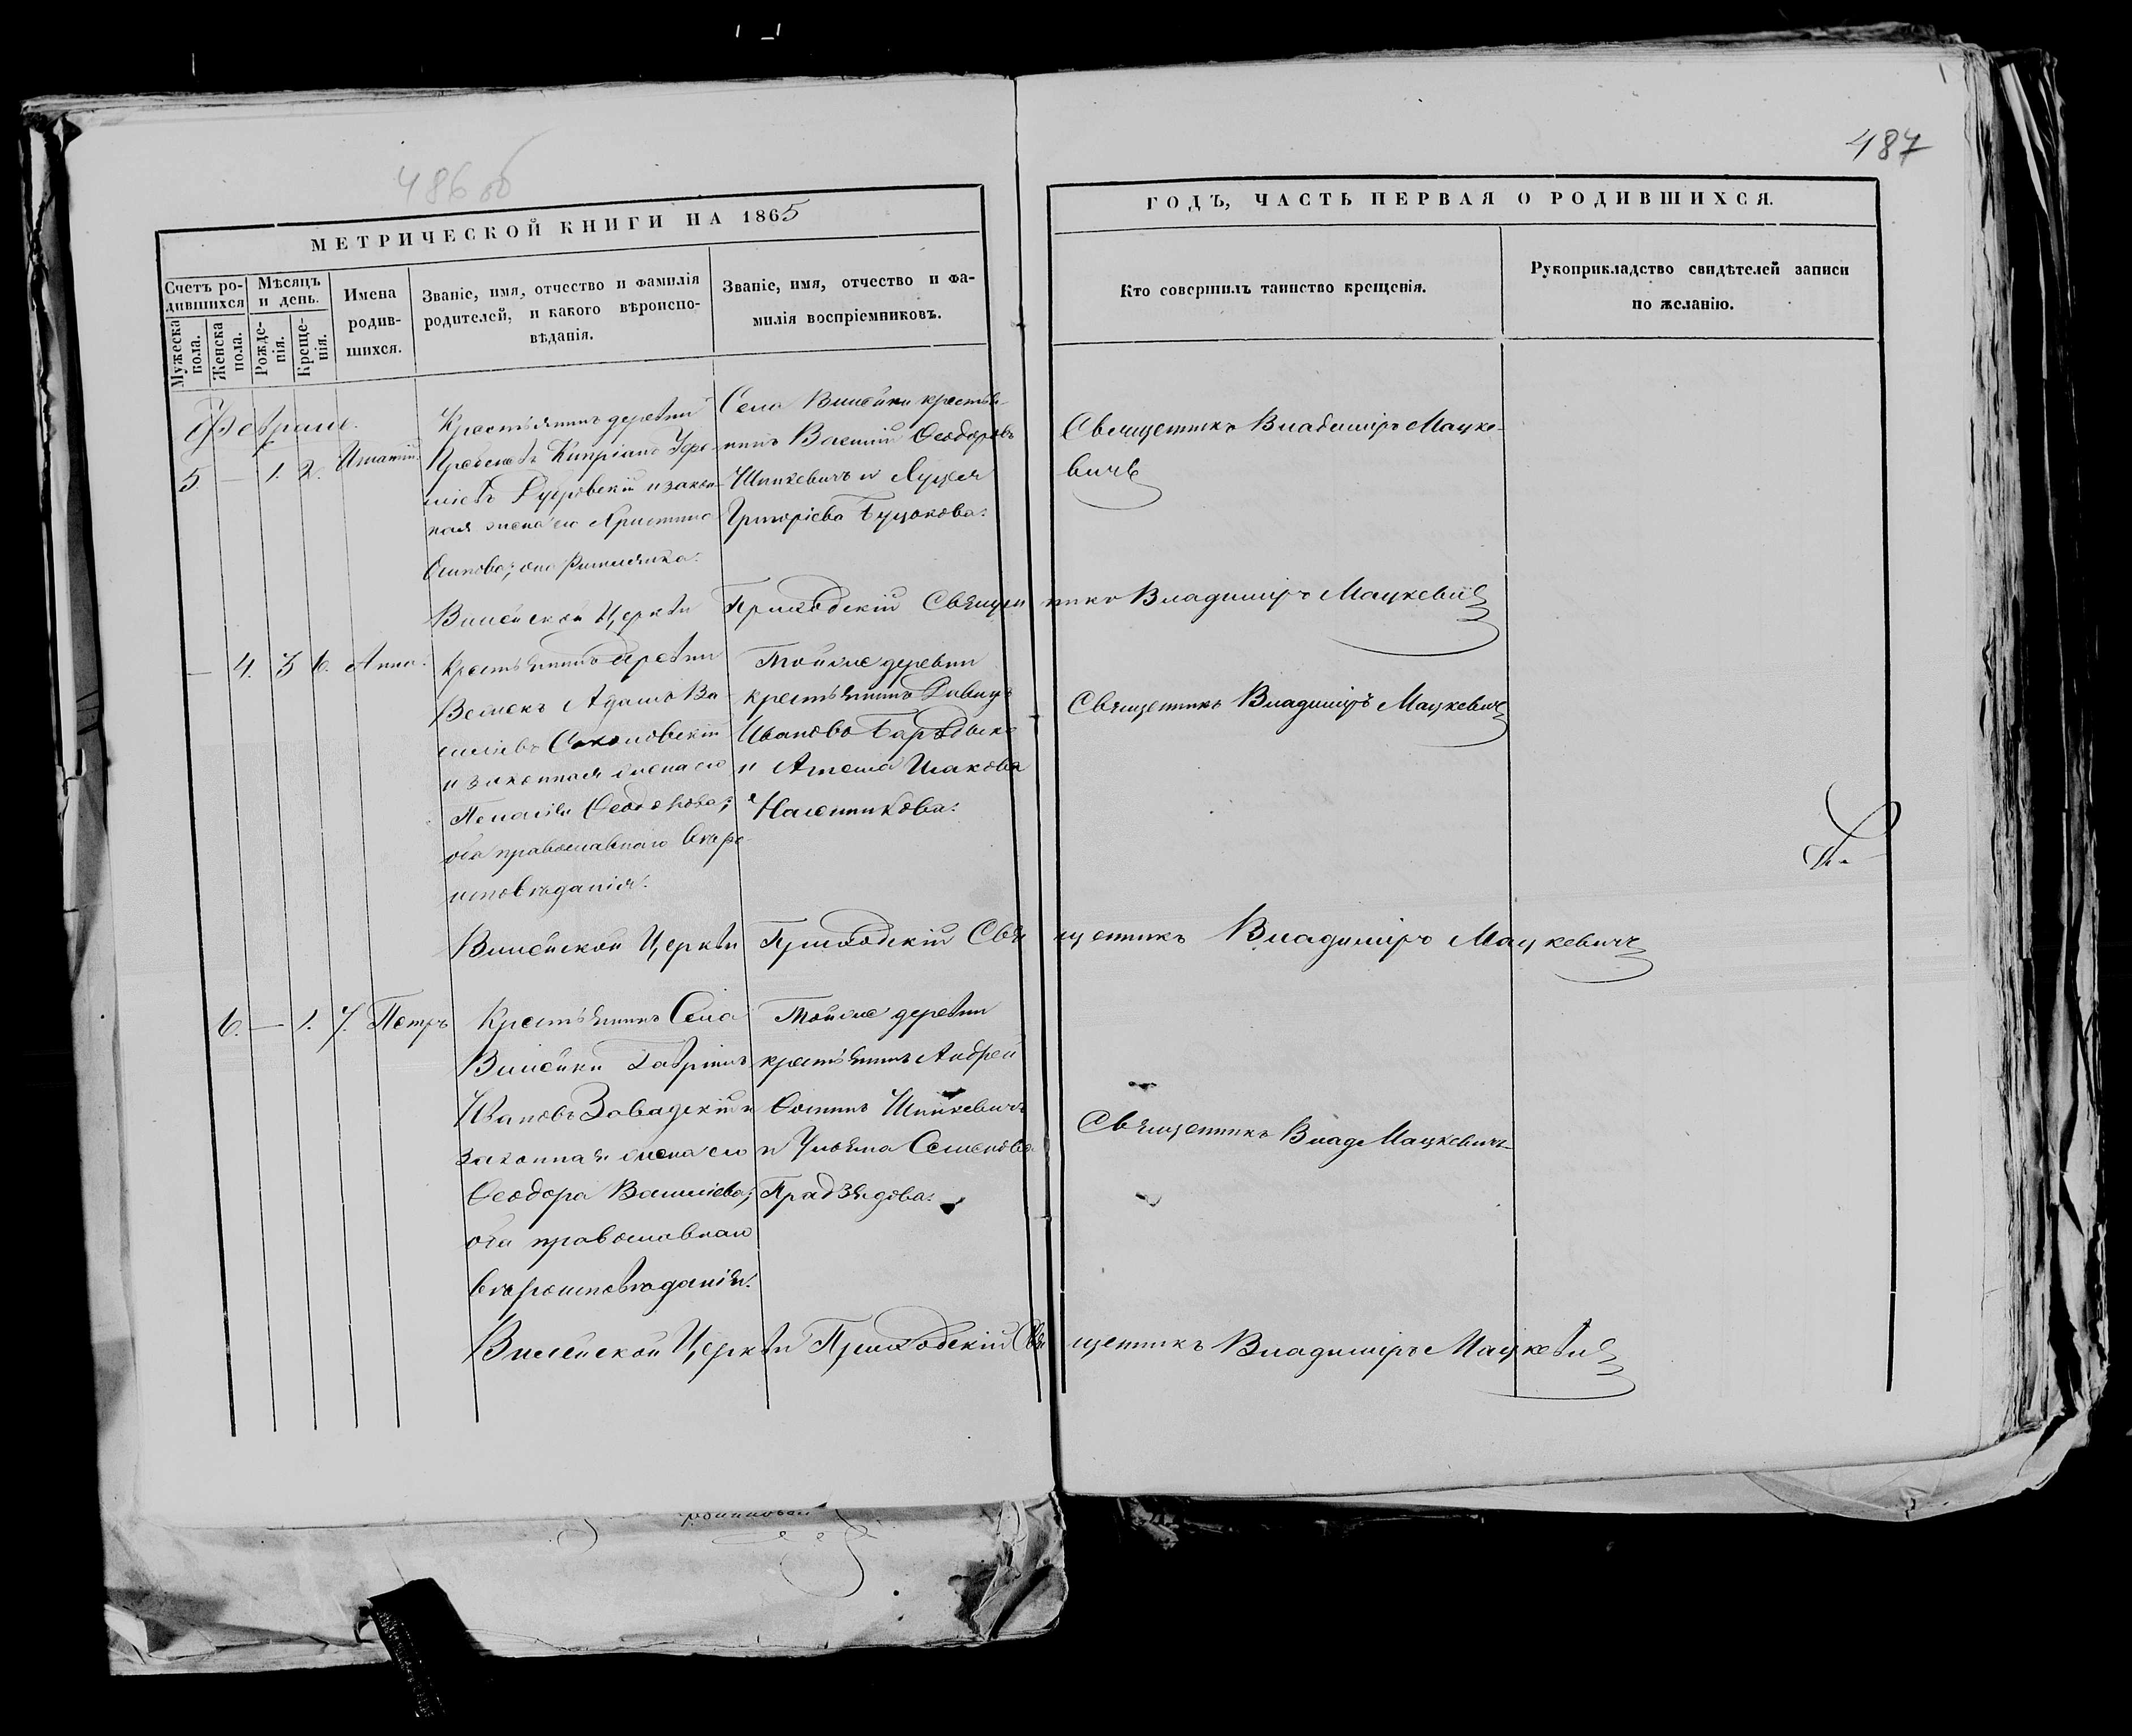 486 об
487
МЕТРИЧЕСКОЙ КНИГИ НА 1865
ГОДЪ, ЧАСТЬ ПЕРВАЯ О РОДИВШИХСЯ.
Счетъ ро-
дившихся
Мужеска
пола.
Женска
пола.
Мѣсяцъ
и день.
Рожде-
нія.
Креще-
нія.
Имена
родив-
шихся.
Званіе, имя, отчество и фамилія
родителей, и какого вѣроиспо-
вѣданія.
Званіе, имя, отчество и фа-
милія воспріемниковъ.
Кто совершилъ таинство крещенія.
Рукоприкладство свидѣтелей записи
по желанію.
Февраль.
5. — 1. 2.
Крестьянинъ деревни
Кипріанъ
и закон-
ная жена его Христина
Осипова;
Села Вилейки крестья-
нинъ Василій Ѳеодоровъ
Шинкевичъ и Луцея
Григоріева
Священникъ Владиміръ Мацке-
вичъ
Вилейской Церкви Приходскій Священникъ Владиміръ Мацкевичъ
— 4. 3 6. Анна.
Крестьянинъ деревни
Адамъ Ва-
сильевъ Соколовскій
и законная жена его
Пелагія Ѳеодорова;
оба православнаго вѣро-
исповѣданія.
Той же деревни
крестьянинъ Давидъ
Ивановъ
и
Священникъ Владиміръ Мацкевичъ
Вилейской Церкви Приходскій Священникъ Владиміръ Мацкевичъ
6. — 1. 7. Петръ
Крестьянинъ Села
Вилейки Гавріилъ
Ивановъ Завадскій и
законная жена его
Ѳеодора Васильева;
оба православнаго
вѣроисповѣданія.
Той же деревни
крестьянинъ Андрей
Осиповъ Шинкевичъ
и Ульяна Семенова
Священникъ Влад. Мацкевичъ
Вилейской Церкви Приходскій Священникъ Владиміръ Мацкевичъ